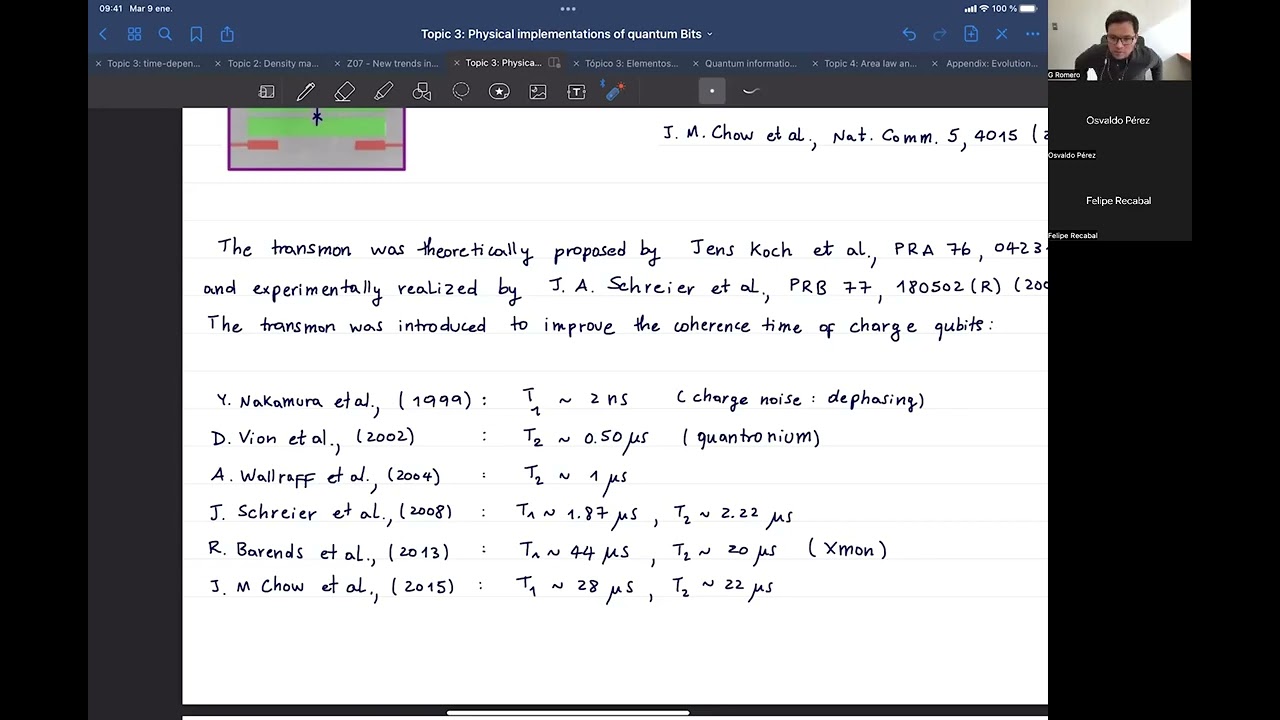 09:41 Mar 9 ene.
100 %
Topic 3: Physical implementations of quantum Bits
Topic 3: time-depen...
Topic 2: Density ma...
Z07 - New trends in...
Topic 3: Physica...
Tópico 3: Elementos...
Quantum informatio...
Topic 4: Area law an...
Appendix: Evolution...
G Romero
Osvaldo Pérez
Osvaldo Pérez
Felipe Recabal
Felipe Recabal
J. M. Chow et al., Nat. Comm. 5, 4015 (2
The transmon was theoretically proposed by Jens Koch et al., PRA 76, 0423
and experimentally realized by J. A. Schreier et al., PRB 77, 180502(R) (200
The transmon was introduced to improve the coherence time of charge qubits:
Y. Nakamura et al., (1999): T1 ~ 2 ns (charge noise: dephasing)
D. Vion et al., (2002) : T2 ~ 0.50 μs (quantronium)
A. Wallraff et al., (2004) : T2 ~ 1 μs
J. Schreier et al., (2008) : T1 ~ 1.87 μs, T2 ~ 2.22 μs
R. Barends et al., (2013) : T1 ~ 44 μs, T2 ~ 20 μs (Xmon)
J. M Chow et al., (2015) : T1 ~ 28 μs, T2 ~ 22 μs